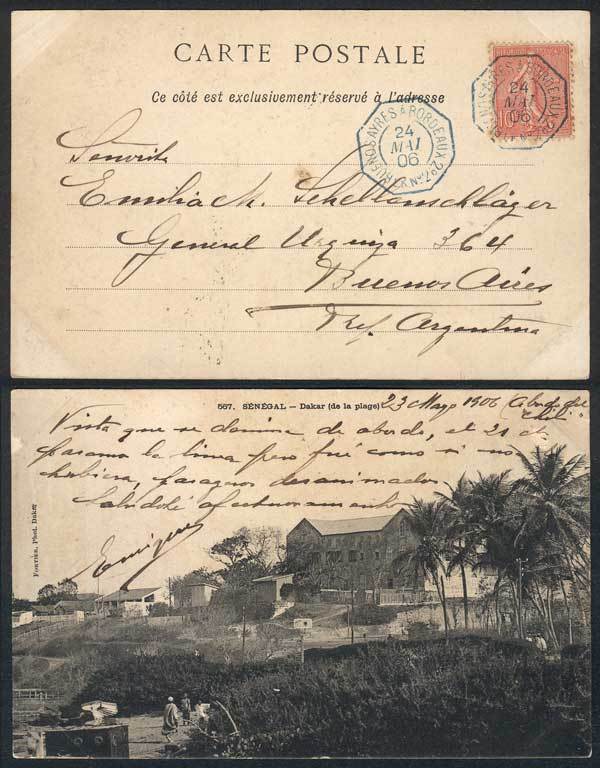 CARTE POSTALE
Ce côté est exclusivement réservé à l'adresse
BUENOS AYRES À BORDEAUX 2º
24
MAI
06
24
MAI
06
10
Señorita
Emilia M. Schellenschläger
General Urquiza 364
Buenos Aires
Rep. Argentina
567. SÉNÉGAL — Dakar (de la plage)
23 Mayo 1906 (A bordo del "Chili"
Vista que se domina de abordo, el 21
pasamos la linea pero fué como si no
hubiera, pasageros desanimados
Salúdole afectuosamente
Enrique
FORTIER, Phot. Dakar